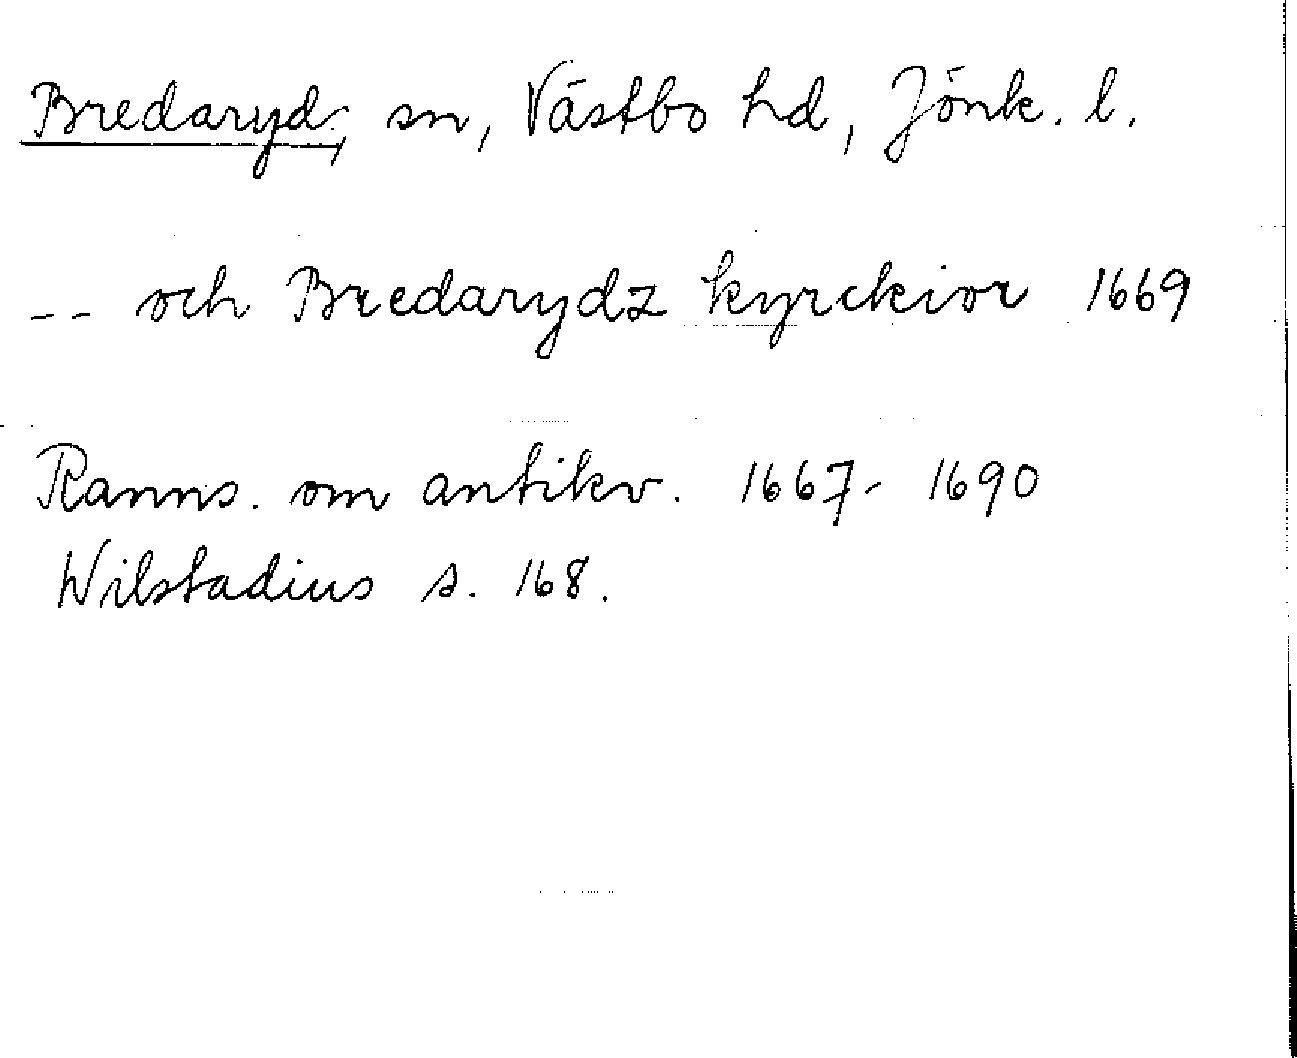 Bredaryd, sn, Västbo hd, Jönk. l.
-- och Bredarydz kyrckior 1669
Ranns. om antikv. 1667- 1690
Wilstadius s. 168.